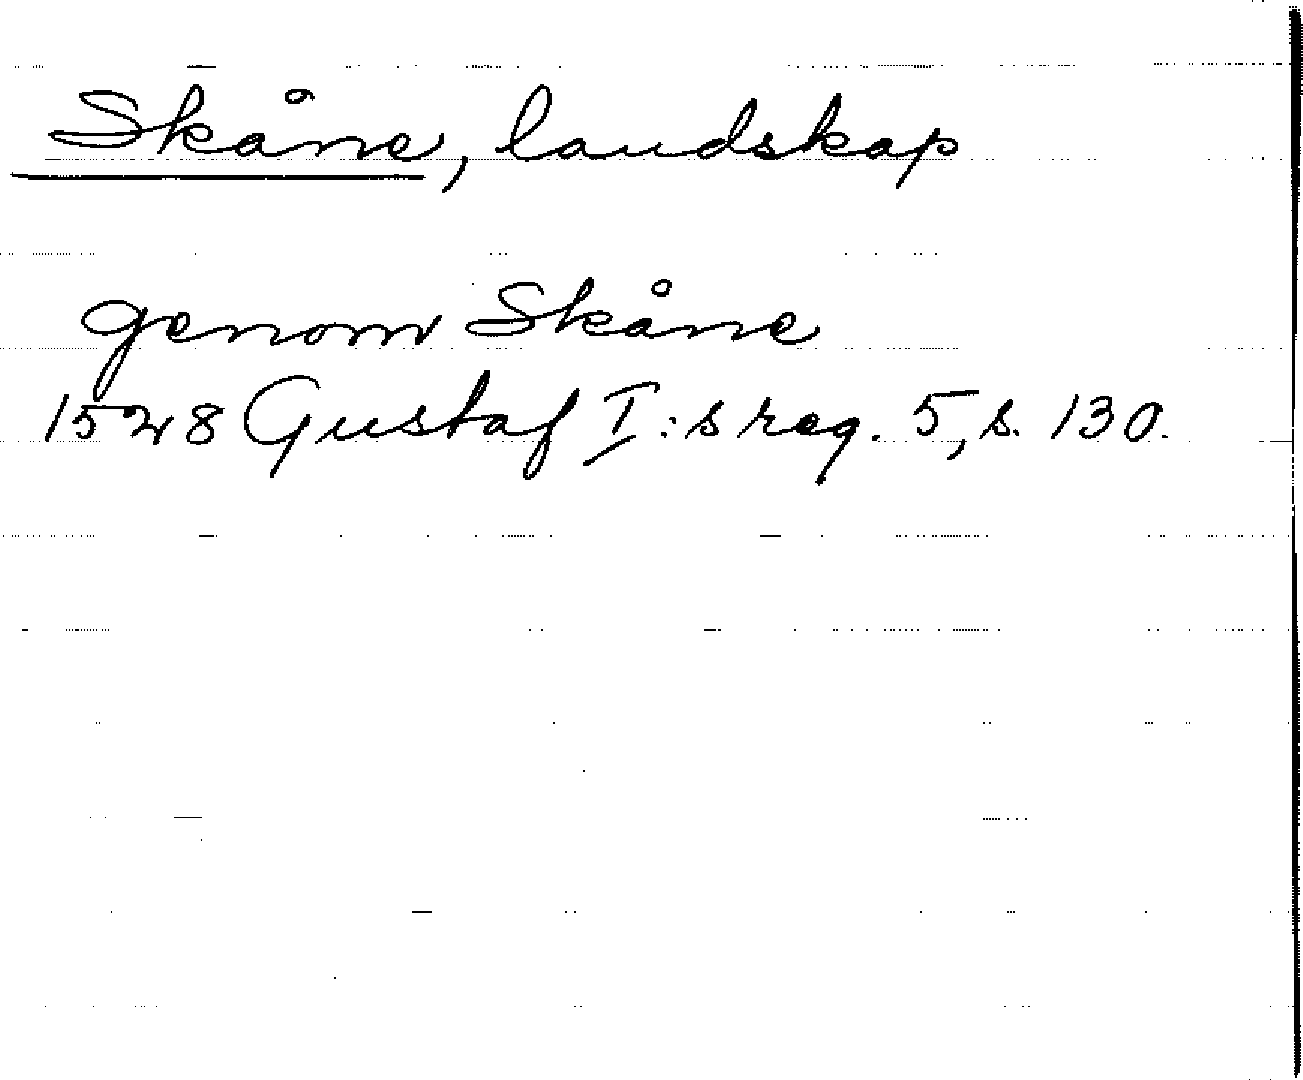 Skåne, landskap
genom Skåne
1528 Gustaf I:s reg. 5, s. 130.